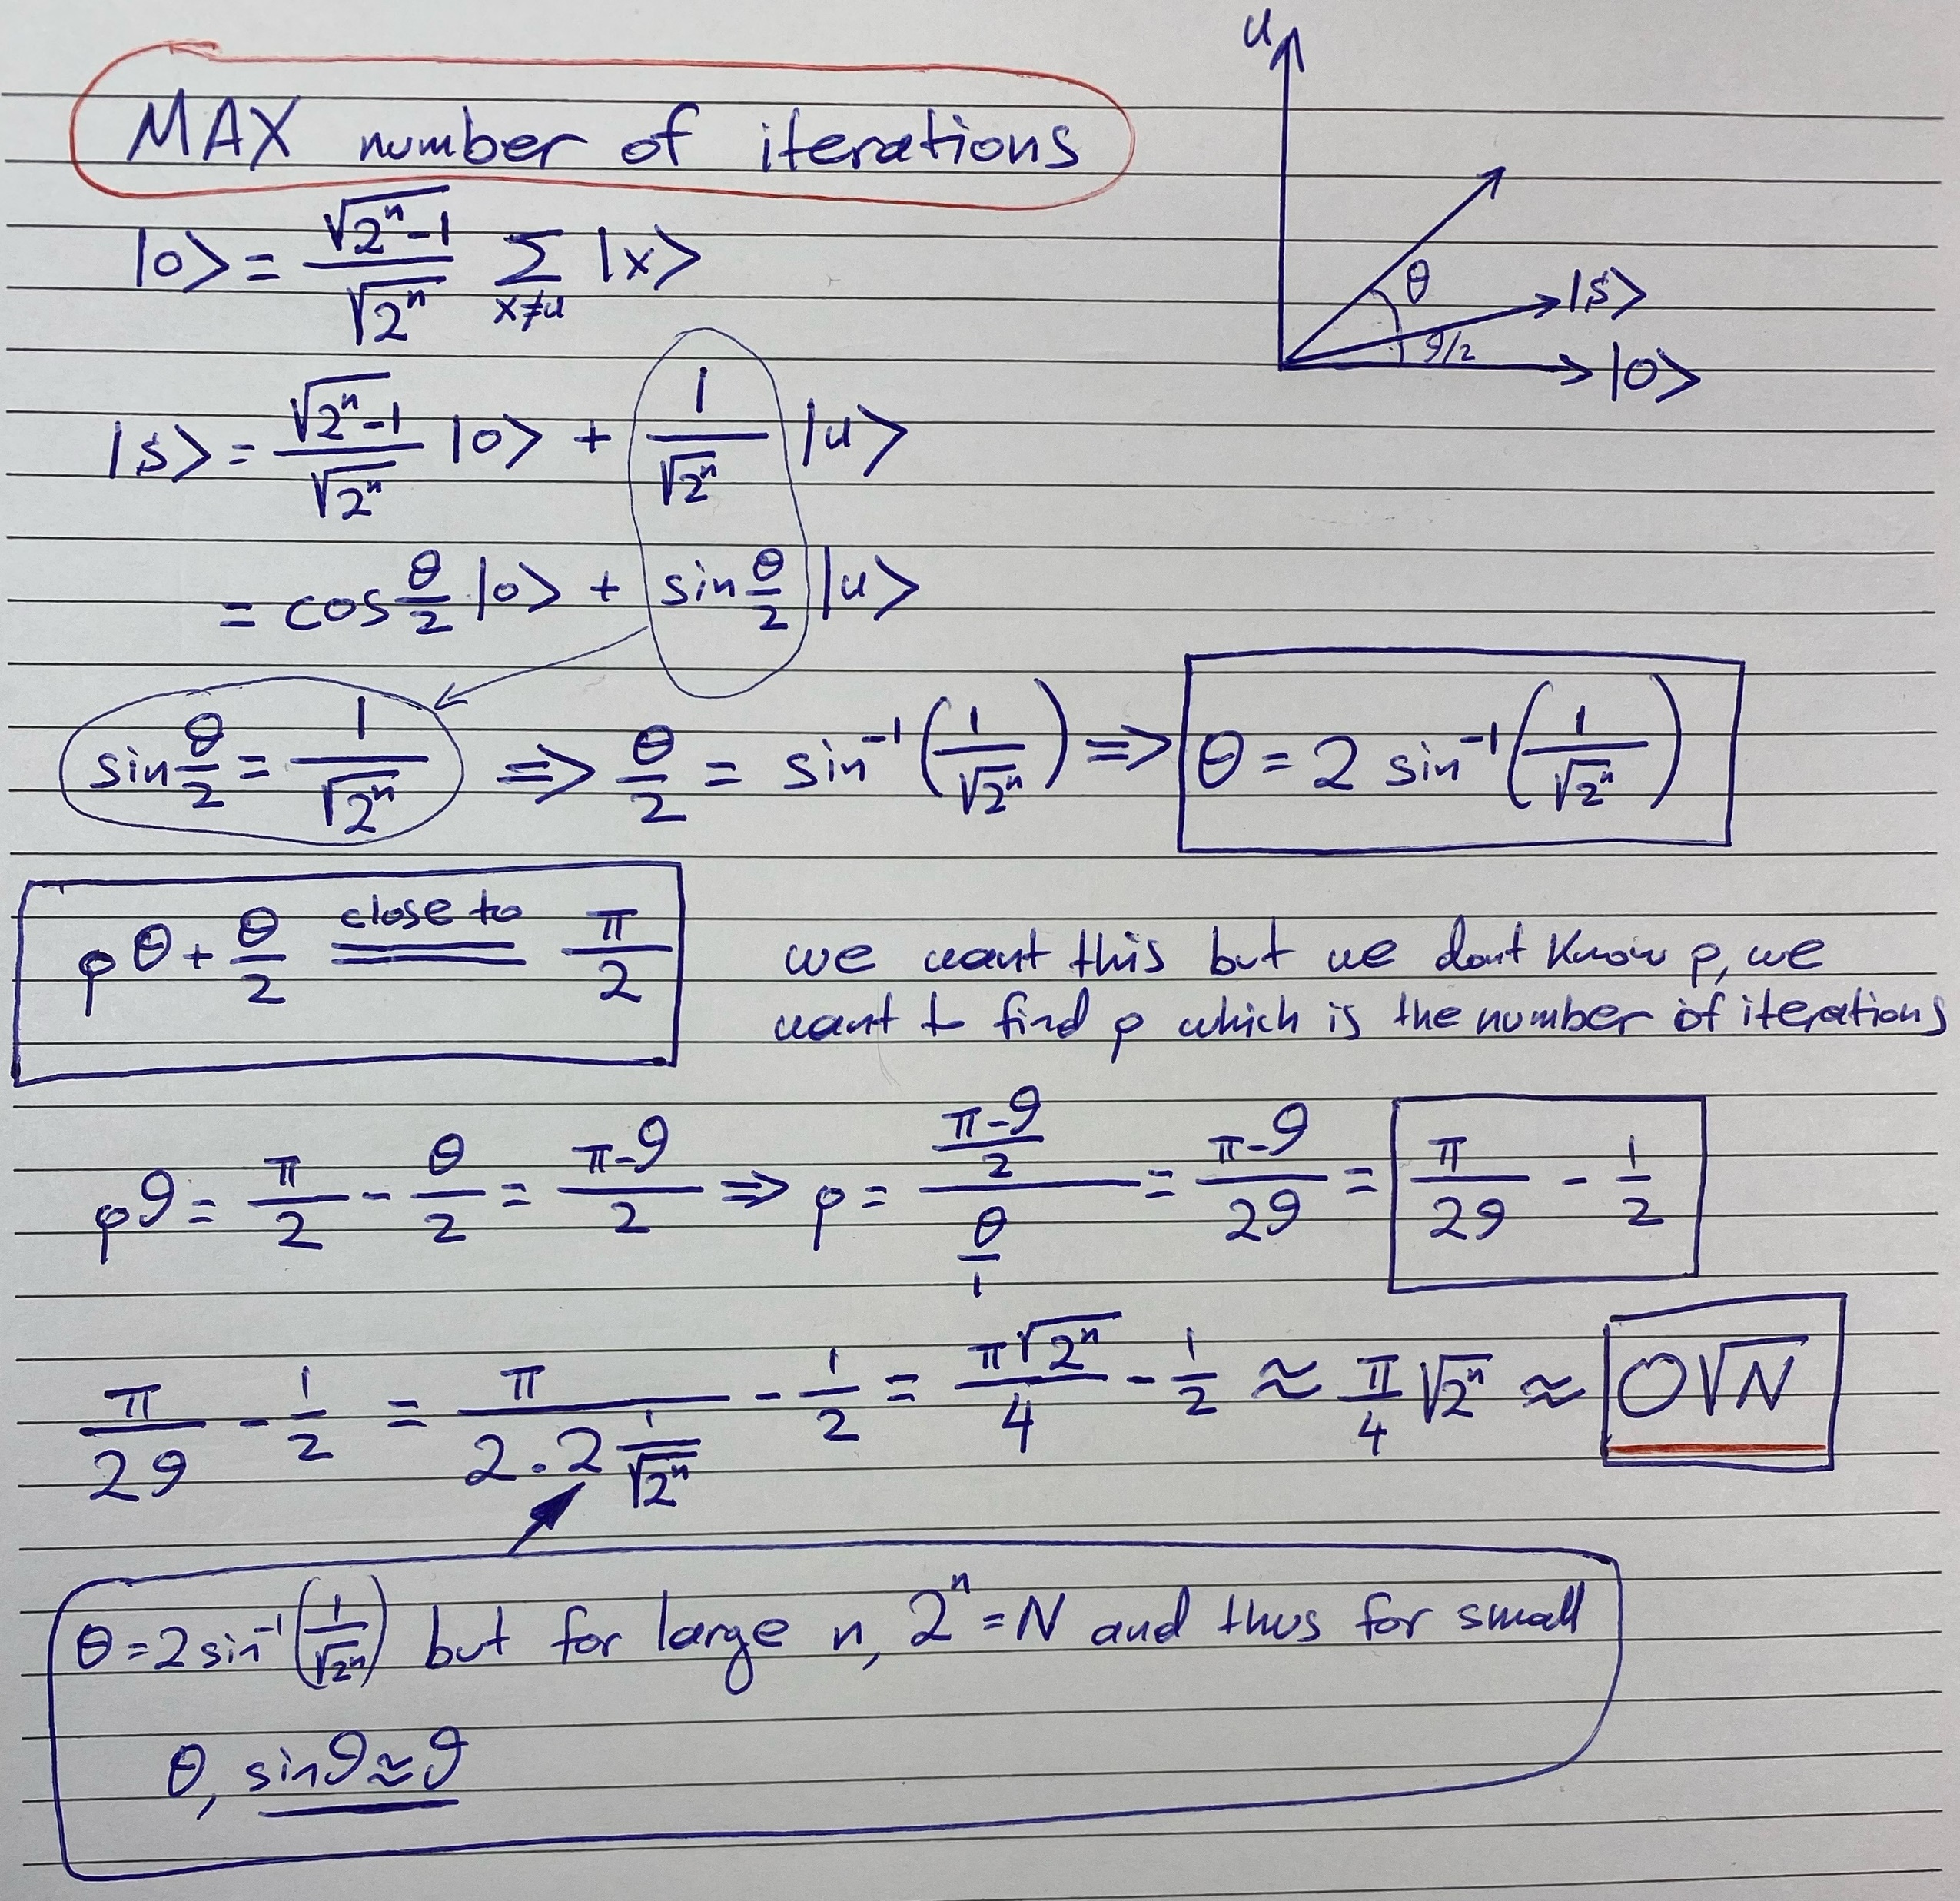 MAX number of iterations
u
|0> = √(2ⁿ-1)/√2ⁿ Σ_{x≠u} |x>
θ |s>
ϑ/2 |0>
|s> = √(2ⁿ-1)/√2ⁿ |0> + 1/√2ⁿ |u>
= cos θ/2 |0> + sin θ/2 |u>
sin θ/2 = 1/√2ⁿ => θ/2 = sin⁻¹(1/√2ⁿ) => θ = 2 sin⁻¹(1/√2ⁿ)
ρθ + θ/2 close to π/2
we want this but we dont know ρ, we
want to find ρ which is the number of iterations
ρϑ = π/2 - θ/2 = (π-ϑ)/2 => ρ = ((π-ϑ)/2)/(θ/1) = (π-ϑ)/2ϑ = π/2ϑ - 1/2
π/2ϑ - 1/2 = π/(2·2 1/√2ⁿ) - 1/2 = π√2ⁿ/4 - 1/2 ≈ π/4 √2ⁿ ≈ O√N
θ = 2 sin⁻¹(1/√2ⁿ) but for large n, 2ⁿ = N and thus for small
θ, sinϑ≈ϑ